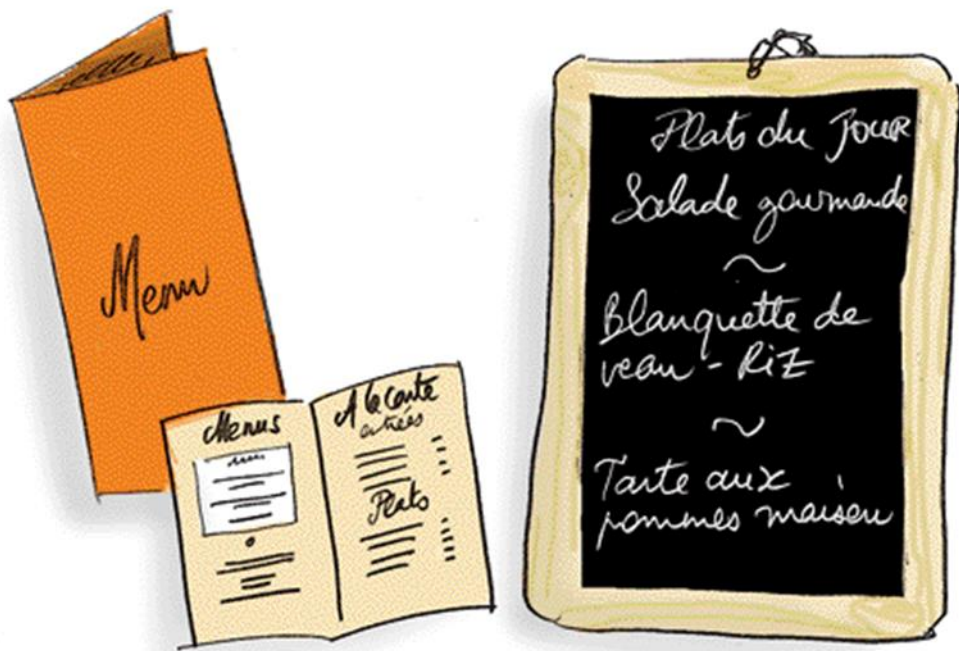 Menu
Menus
A la carte
entrées
Plats
Plats du JOUR
Salade gourmande
~
Blanquette de
veau - RiZ
~
Tarte aux
pommes maison